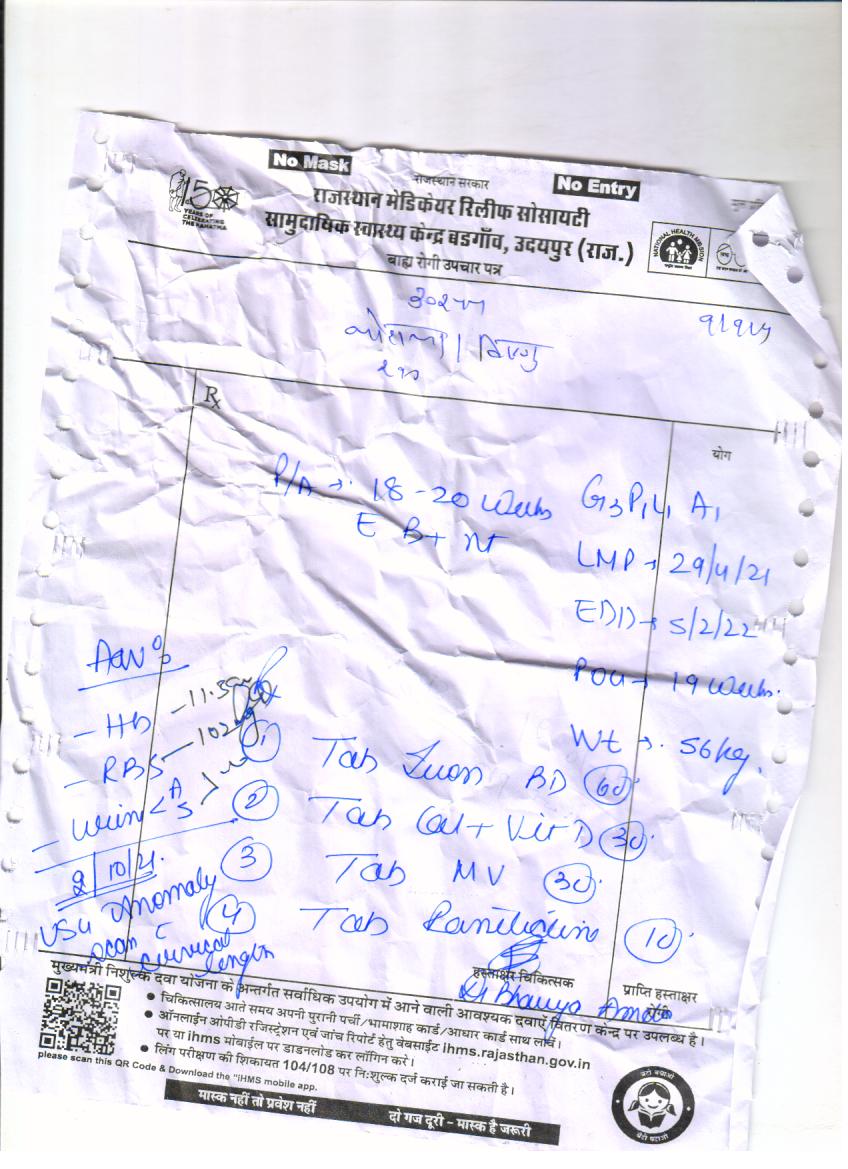 No Mask
No Entry
राजस्थान सरकार
150
YEARS OF
CELEBRATING
THE MAHATMA
राजस्थान मेडिकेयर रिलीफ सोसायटी
NATIONAL HEALTH MISSION
सामुदायिक स्वास्थ्य केन्द्र बडगाँव, उदयपुर (राज.)
बाह्य रोगी उपचार पत्र
Rx
योग
P/A → 18-20 weeks
G3P1L1A1
LMP → 29/4/21
EDD → 5/2/22
POG → 19 weeks.
Wt → 56kg.
Adv
- Hb - 11.3
- RBS - 102
- Urine < A S
① Tab Iron BD (60)
② Tab Cal + Vit D (30)
③ Tab MV (30)
④ Tab Ranitidine (10)
2/10/21
USG Anomaly
scan c
cervical
length
हस्ताक्षर चिकित्सक
प्राप्ति हस्ताक्षर
मुख्यमंत्री निशुल्क दवा योजना के अन्तर्गत सर्वाधिक उपयोग में आने वाली आवश्यक दवाएं वितरण केन्द्र पर उपलब्ध है।
• चिकित्सालय आते समय अपनी पुरानी पर्ची/भामाशाह कार्ड/आधार कार्ड साथ लावें।
• ऑनलाईन ओपीडी रजिस्ट्रेशन एवं जांच रिपोर्ट हेतु वेबसाईट ihms.rajasthan.gov.in
पर या ihms मोबाईल पर डाउनलोड कर लॉगिन करे।
• लिंग परीक्षण की शिकायत 104/108 पर नि:शुल्क दर्ज कराई जा सकती है।
please scan this QR Code & Download the "IHMS mobile app.
मास्क नहीं तो प्रवेश नहीं
दो गज दूरी - मास्क है जरूरी
बेटी बचाओ
बेटी पढाओ